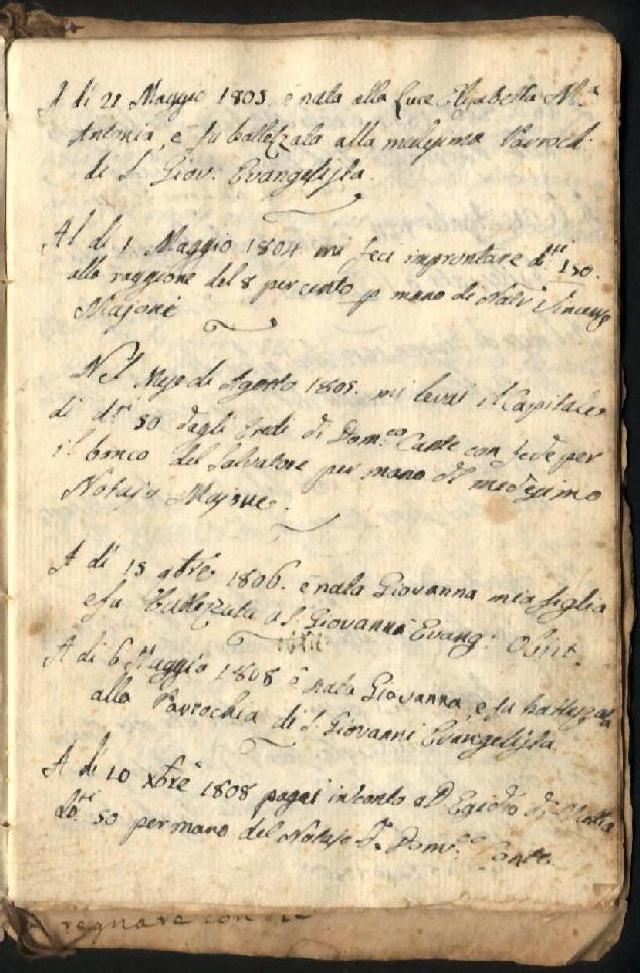 A di 21 Maggio 1803. è nata alla Luce Elisabetta M.a
Antonia, e fu battezzata alla medesima Parroch.
di S. Giov. Evangelista.
Al di 1 Maggio 1804 mi feci improntare d.ti 150.
alla raggione del 8 per cento p mano di Notar Vincenzo
Majone
Nel Mese di Agosto 1805. mi levai il Capitale
di d.ti 50 dagli Eredi di Dom.co Conte con fede per
il banco del Salvatore per mano del medesimo
Notajo Majone.
A di 15 9bre 1806. è nata Giovanna mia figlia
e fu battezzata a S. Giovanni Evang: Obiit.
obiit
A di 6 Maggio 1808 è nata Giovanna, e fu battezzata
alla Parrochia di S. Giovanni Evangelista
A di 10 xbre 1808 pagai in conto a D. Egidio di
D.ti 50 per mano del Notajo D. Dom.co Conte.
regnare con